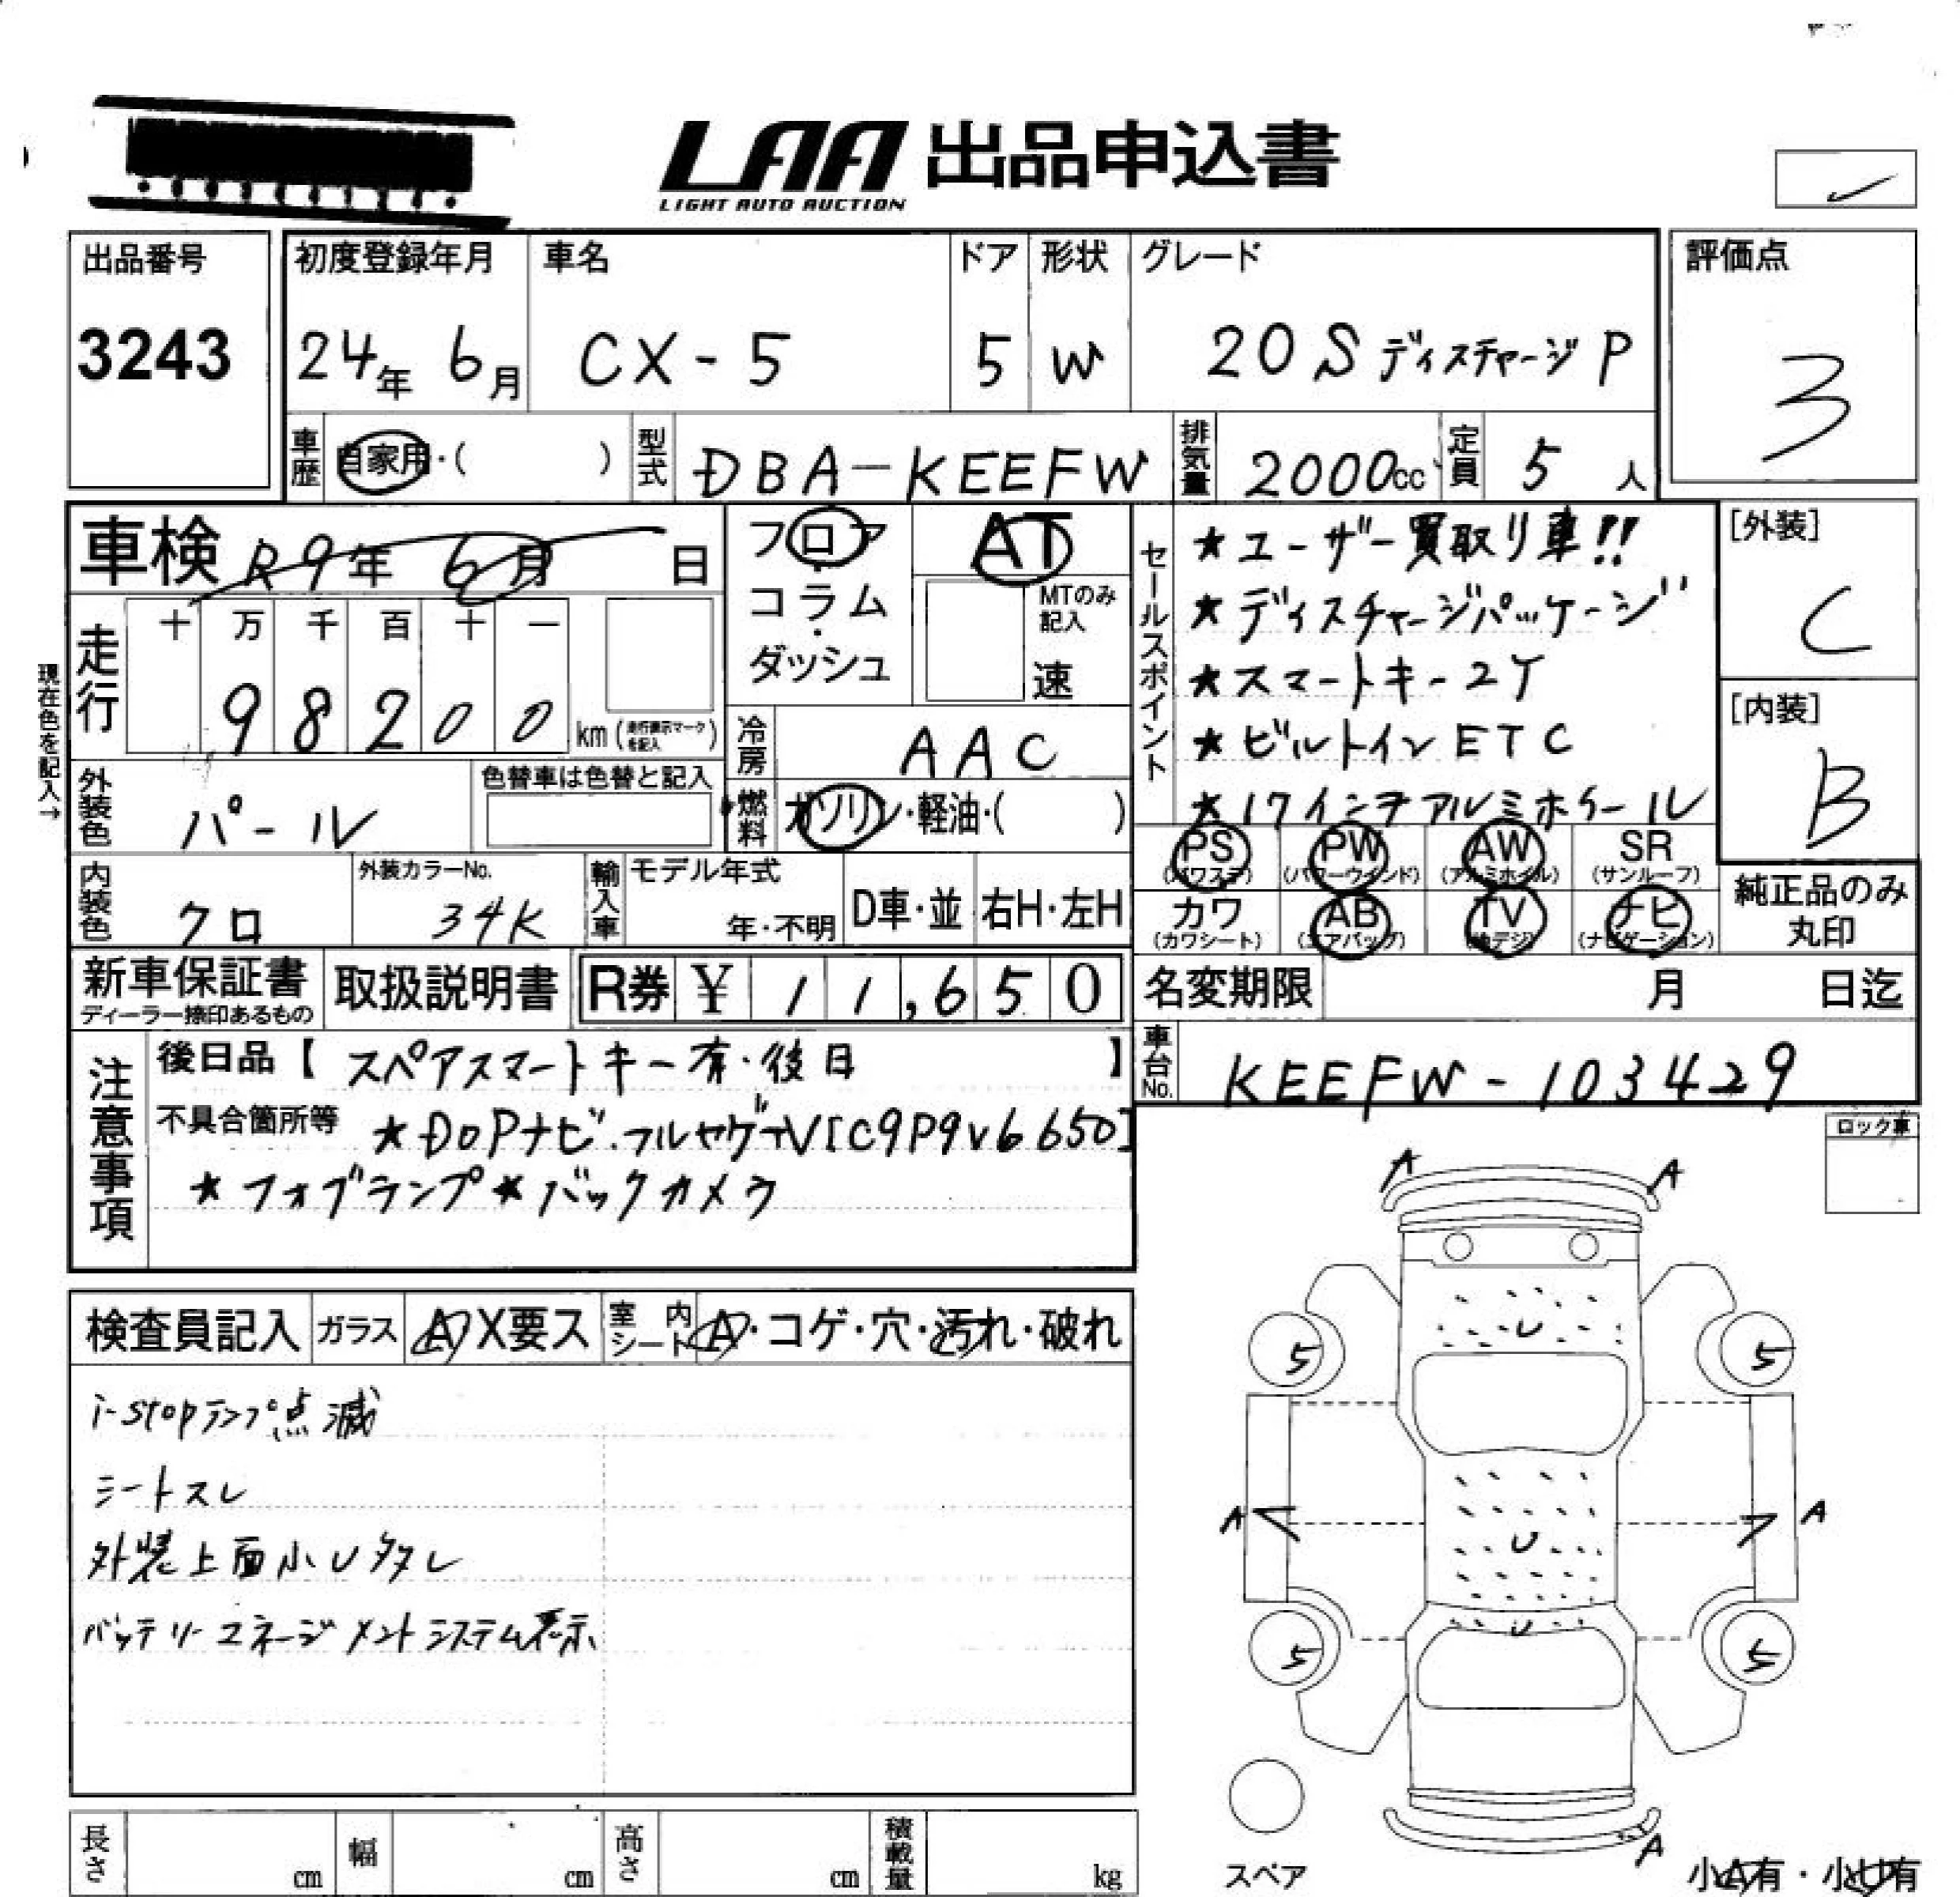 LAA 出品申込書
LIGHT AUTO AUCTION
出品番号
3243
初度登録年月
24年 6月
車名
CX-5
ドア
5
形状
W
グレード
20S ディスチャージP
評価点
3
車歴
自家用・( )
型式
DBA-KEEFW
排気量
2000cc
定員
5人
車検 R9年 6月 日
フロア
・
コラム
・
ダッシュ
AT
MTのみ
記入
速
走行
十 万 千 百 十 一
9 8 2 0 0
km(走行表示マークを記入)
現在色を記入→
冷房
AAC
外装色
パール
色替車は色替と記入
燃料
ガソリン・軽油・( )
内装色
クロ
外装カラーNo.
34K
輸入車
モデル年式
年・不明
D車・並
右H・左H
セールスポイント
★ユーザー買取り車!!
★ディスチャージパッケージ
★スマートキー2ケ
★ビルトインETC
★17インチアルミホイール
[外装]
C
[内装]
B
PS
(パワステ)
PW
(パワーウインド)
AW
(アルミホイル)
SR
(サンルーフ)
カワ
(カワシート)
AB
(エアバッグ)
TV
(地デジ)
ナビ
(ナビゲーション)
純正品のみ
丸印
新車保証書
ディーラー捺印あるもの
取扱説明書
R券 ¥ 11,650
名変期限 月 日迄
車台No.
KEEFW-103429
注意事項
後日品【スペアスマートキー有・後日】
不具合箇所等 ★DOPナビ・フルセグTV[C9P9V6650]
★フォグランプ★バックカメラ
ロック車
検査員記入
ガラス
A X要ス
室内シート
A・コゲ・穴・汚れ・破れ
i-stopランプ点滅
シートスレ
外装上面小Uタタレ
バッテリーマネージメントシステム表示
A A
U
5 5
A A
U
U
5 5
A
スペア
小A有・小U有
長さ cm
幅 cm
高さ cm
積載量 kg